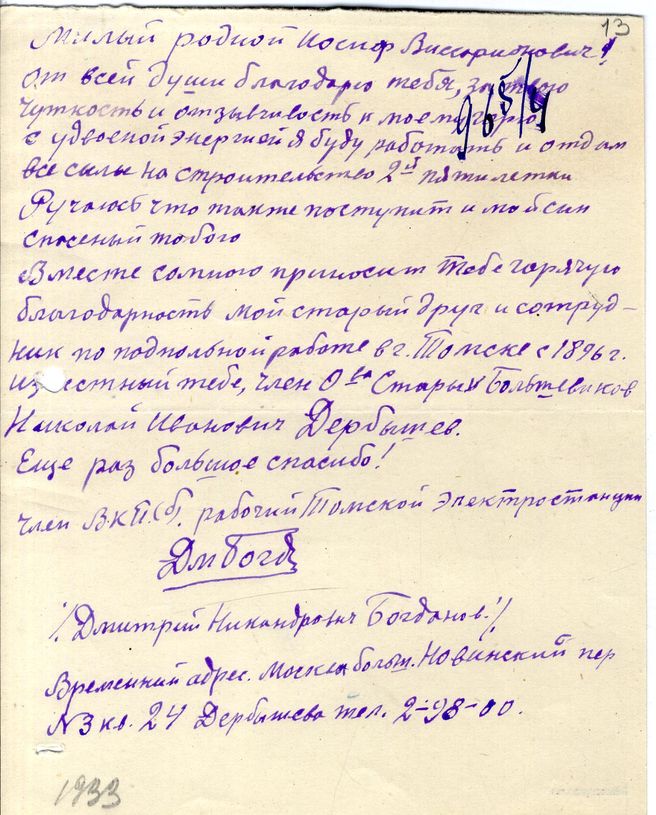 13
Милый родной Иосиф Виссарионович!
от всей души благодарю тебя, за твою
чуткость и отзывчивость к моему горю,
965/4
с удвоеной энергией я буду работать и отдам
все силы на строительство 2й пятилетки
Ручаюсь что также поступит и мой син
спасеный тобого
Вместе сомного приносит тебе горячую
благодарность мой старый друг и сотруд-
ник по подпольной работе в г. Томске с 1896 г.
известный тебе, член О ва Старых Большевиков
Николай Иванович Дербышев.
Еще раз большое спасибо!
член ВКП(б). рабочий Томской Электростанции
ДмБогд
/Дмитрий Никандрович Богданов!/
Временний адрес. Москва больш. Новинский пер
N3 кв. 24 Дербышева тел. 2-98-00.
1933